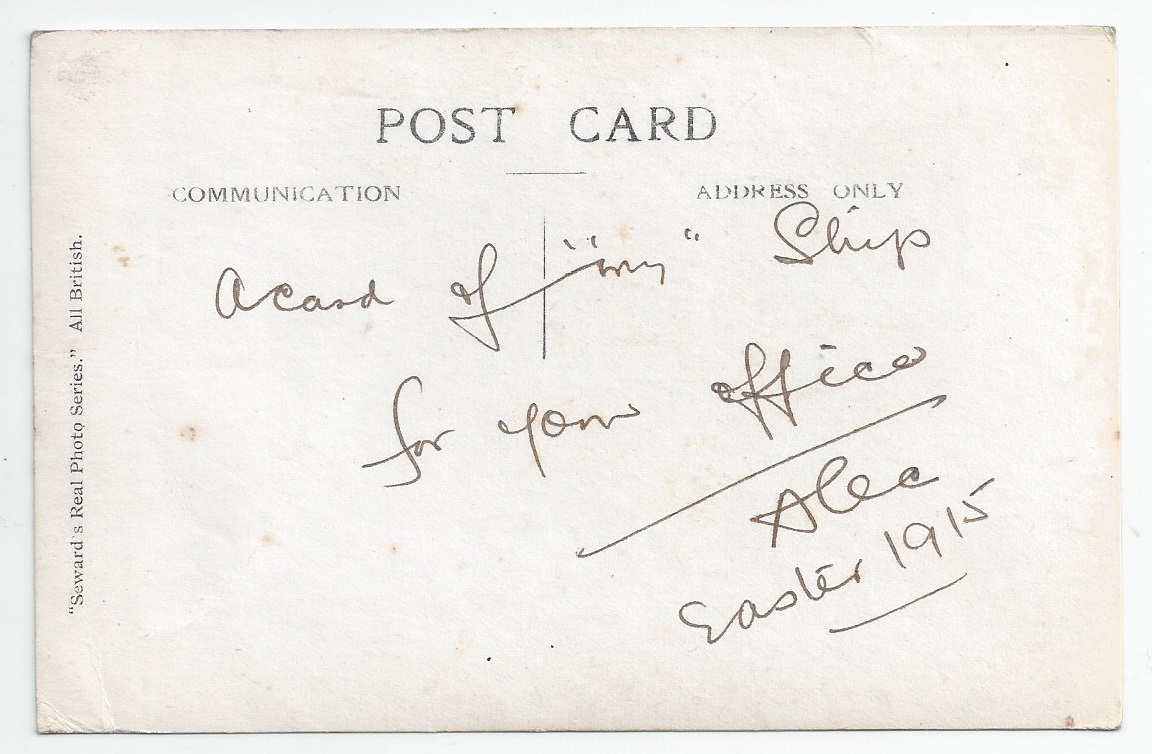 POST CARD
COMMUNICATION
ADDRESS ONLY
A card of "my" Ship
for your office
Alec
Easter 1915
"Seward's Real Photo Series." All British.